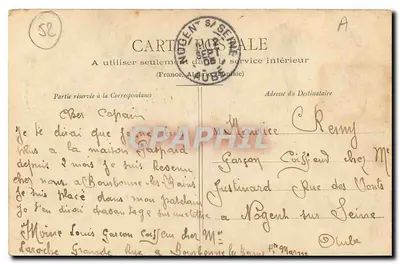 52
A
CARTE POSTALE
A utiliser seulement dans le service intérieur
(France, Algérie, Tunisie)
NOGENT S/ SEINE
12
SEPT
05
AUBE
Partie réservée à la Correspondance
Adresse du Destinataire
CPARAMA
Cher Copain
Je te dirai que je ne
plus a la maison
depuis 2 mois Je suis Revenu
cher nous a Bourbonne les Bains
Je suis placé dans mon patelin
Je t'en dirai davantage sur une lettre
Moine Louis Garcon chez Mr
Laroche Grande Rue a Bourbonne les Bains Hte Marne
Maurice Remy
Garçon chez Me
Justinard Rue des Ponts
a Nogent sur Seine
Aube